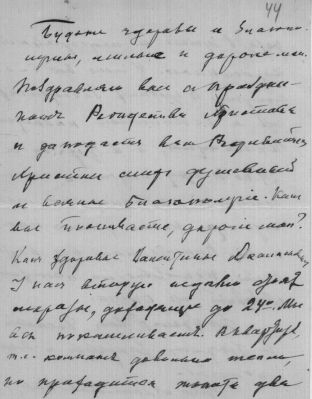 44
Будьте здоровы и благопо-
лучны, милые и дорогие мои.
Поздравляю вас с праздни-
комъ Рождества Христова
и да подастъ вамъ Родивыйся
Христосъ миръ душевный
и всякое благополучіе. Какъ
вы поживаете, дорогіе мои?
Какъ здоровье Валентины
У насъ вторую недѣлю стоятъ
морозы, доходящіе до 24°. Мы
всѣ покашливаемъ. Въ квартирѣ,
т.е. комнатѣ довольно тепло,
но приходится топить два